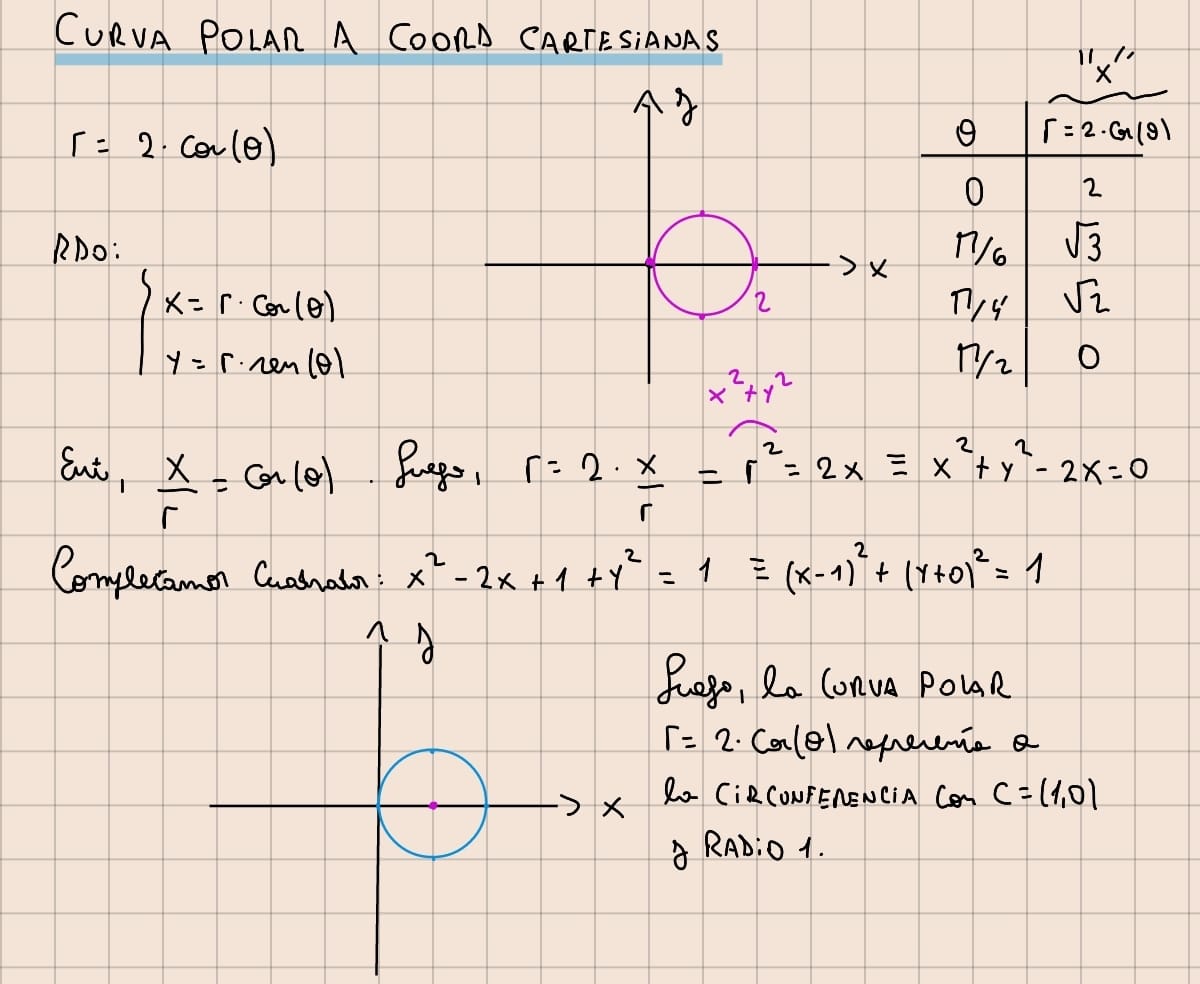 CURVA POLAR A COORD CARTESIANAS
r = 2 · Cos(θ)
y
x
2
"x"
θ | r = 2 · Cos(θ)
0 | 2
π/6 | √3
π/4 | √2
π/2 | 0
RDO:
x = r · Cos(θ)
y = r · sen(θ)
x² + y²
Ent, x/r = Cos(θ). Luego, r = 2 · x/r = r² = 2x ≡ x² + y² - 2x = 0
Completamos Cuadrados: x² - 2x + 1 + y² = 1 ≡ (x-1)² + (y+0)² = 1
y
x
Luego, la CURVA POLAR
r = 2 · Cos(θ) representa a
la CIRCUNFERENCIA Con C = (1,0)
y RADIO 1.